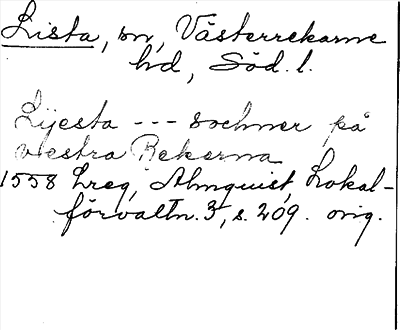 Lista, sn, Västerrekarne
hd, Söd. l.
Lijesta --- sochner på
vestra Rekarna
1558 Lreg, Almquist, Lokal-
förvaltn. 3, s. 209. orig.